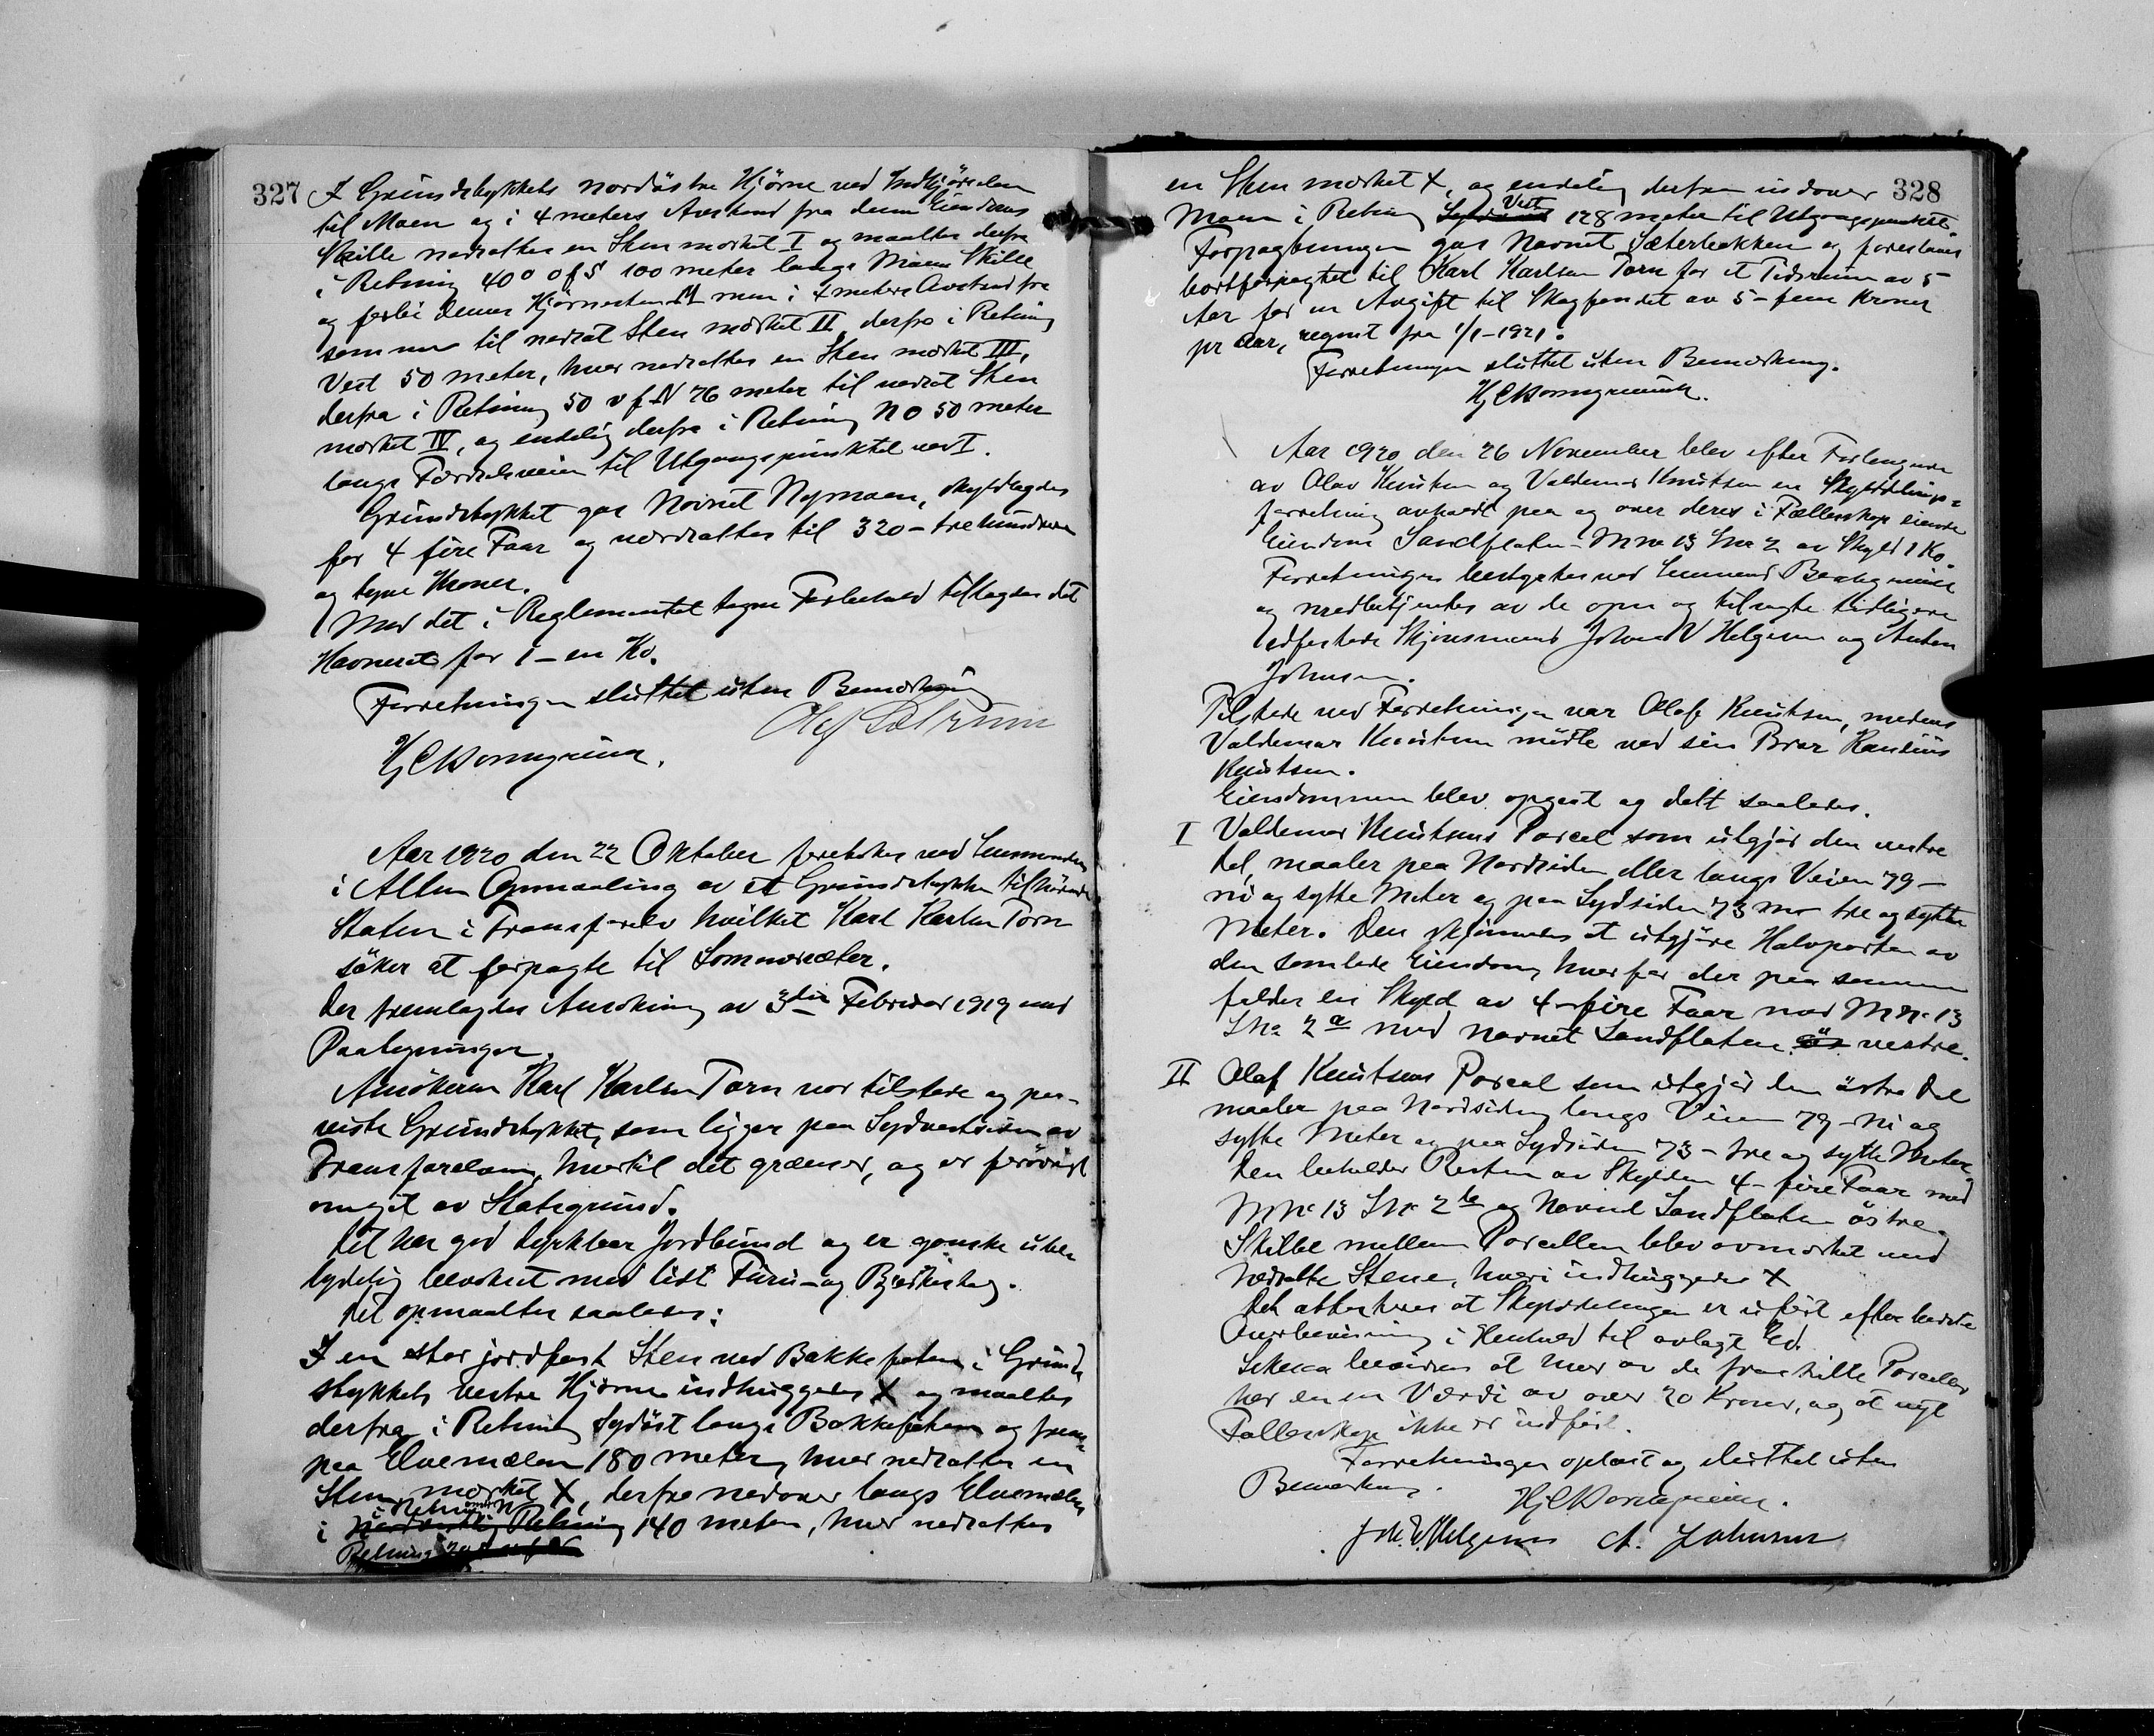 327
I Grundstykkets nordöstre Hjørne ved Indkjörselen
til Moen og i 4 meters Avstand fra denne Eiendoms
Skille nedsattes en Sten merket I og maaltes derfra
i Retning 40° O f S 100 meter langs Moens Skille
og forbi dennes Hjörnesten M men i 4 meters Avstand fra
samme til nedsat Sten merket II, derfra i Retning
Vest 50 meter, hvor nedsattes en Sten merket III,
derfra i Retning 50 v f N 76 meter til nedsat Sten
merket IV, og endelig derfra i Retning NO 50 meter
langs Færdselsveien til Utgangspunktet ved I.
Grundstykket gas Navnet Nymoen, skyldlagdes
for 4 fire Faar og verdsattes til 320 - trehundrede
og tyve Kroner.
Med det i Reglementet tagne Forbehold tillagdes det
Havneret for 1 - en Ko.
Forretningen sluttet uten Bemerkning
Aar 1920 den 22 Oktober foretokes ved Lensmanden
i Alten Opmaaling av et Grundstykke tilhörende
Staten i Transfarelv hvilket Karl Karlsen Torn
söker at forpagte til Sommersæter.
Der fremlagdes Ansökning av 3die Februar 1919 med
Paategninger.
Ansökeren Karl Karlsen Torn var tilstede og paa-
viste Grundstykket, som ligger paa Sydvestsiden av
Transfarelven, hvortil det grænser, og er forövrigt
omgit av Statsgrund.
Det har god dyrkbar Jordbund og er ganske ube-
tydelig bevokset med lidt Furu- og Bjerkeskog.
Det opmaaltes saaledes:
I en stor jordfast Sten ved Bakkefoten i Grund-
stykkets vestre Hjörne indhuggedes X og maaltes
derfra i Retning Sydöst langs Bakkefoten og frem
paa Elvemælen 180 meter, hvor nedsattes en
Sten merket X, derfra nedover langs Elvemælen
i Retning N
i nordvestlig Retning 140 meter, hvor nedsattes
Retning
328
en Sten merket X, og endelig derfra indover
Moen i Retning Vest 128 meter til Utgangspunktet.
Forpagtningen gas Navnet Sæterbakken og foreslaaes
bortforpagtet til Karl Karlsen Torn for et Tidsrum av 5
Aar for en Avgift til Skogfondet av 5 - fem Kroner
pr Aar, regnet fra 1/1-1921.
Forretningen sluttet uten Bemerkning.
Aar 1920 den 26 November blev efter Forlangende
av Olav Knutsen og Valdemar Knutsen en Skylddelings-
forretning avholdt paa og over deres i Fællesskap eiende
Eiendom Sandfloten - M No 13 L No 2 av Skyld 1 Ko.
Forretningen bestyrtes ved Lensmand
og medbetjentes av de opn og tilsagte tidligere
edfæstede Skjönsmænd Johan V Helgesen og Anton
Johnsen.
Tilstede ved Forretningen var Olaf Knutsen, medens
Valdemar Knutsen mödte ved sin Bror
Knutsen.
Eiendommen blev opgaat og delt saaledes.
I Valdemar Knutsens Parcel som utgjör den vestre
Del, maaler paa Nordsiden eller langs Veien 79 -
ni og sytti Meter og paa Sydsiden 73 m tre og sytti
Meter. Den skjönnes at utgjöre Halvparten av
den samlede Eiendom, hvorfor der paa samme
falder en Skyld av 4 - fire Faar med M No 13
L No 2 a med Navnet Sandfloten ös vestre.
II Olaf Knutsens Parcel som utgjör den östre Del
maaler paa Nordsiden langs Veien 79 - ni og
sytti Meter og paa Sydsiden 73 - tre og sytti Meter.
Den beholder Resten av Skylden 4 - fire Faar med
M No 13 L No 2 b og Navnet Sandfloten östre.
Skillet mellem Parcellen blev avmerket med
nedsatte Stene, hvori indhuggedes X
Det attesteres at Skylddelingen er utfört efter bedste
Overbevisning i Henhold til avlagt Ed.
at hver av de fraskilte Parceller
har en Værdi av over 20 Kroner, og at nyt
Fællesskap ikke er indfört.
Forretningen oplæst og sluttet uten
Bemerkning.
A. Johnsen